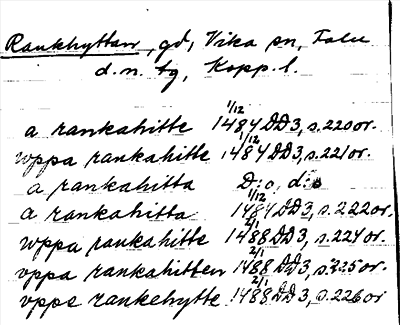 Rankhyttan, gd, Vika sn, Falu
d.n. tg, Kopp. l.
a rankahitte 1/12 1484 DD3, s. 220 or.
uppa rankahitte 1/12 1484 DD3, s. 221 or.
a rankahitta D:o, d:o
a rankahitta 1/12 1484 DD3, s. 222 or.
uppa rankahitte 2/1 1488 DD3, s. 224 or.
uppa rankahitten 2/1 1488 DD3, s. 225 or.
uppe rankehytte 2/1 1488 DD3, s. 226 or